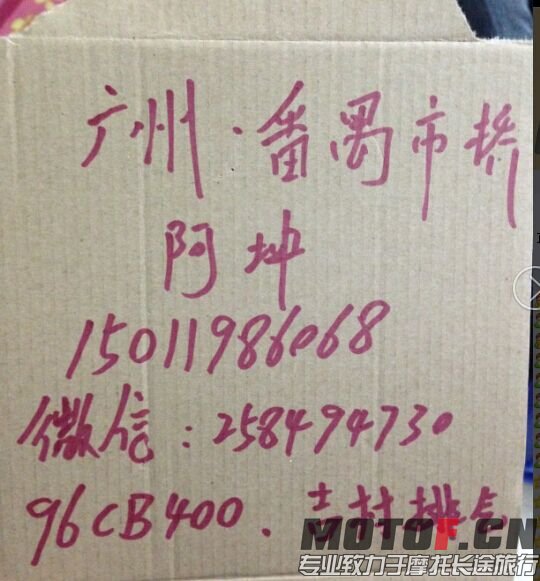 广州·番禺市桥
阿坤
15011986068
微信:258494730
96CB400.吉村排气
MOTOR.CN
专业致力于摩托长途旅行